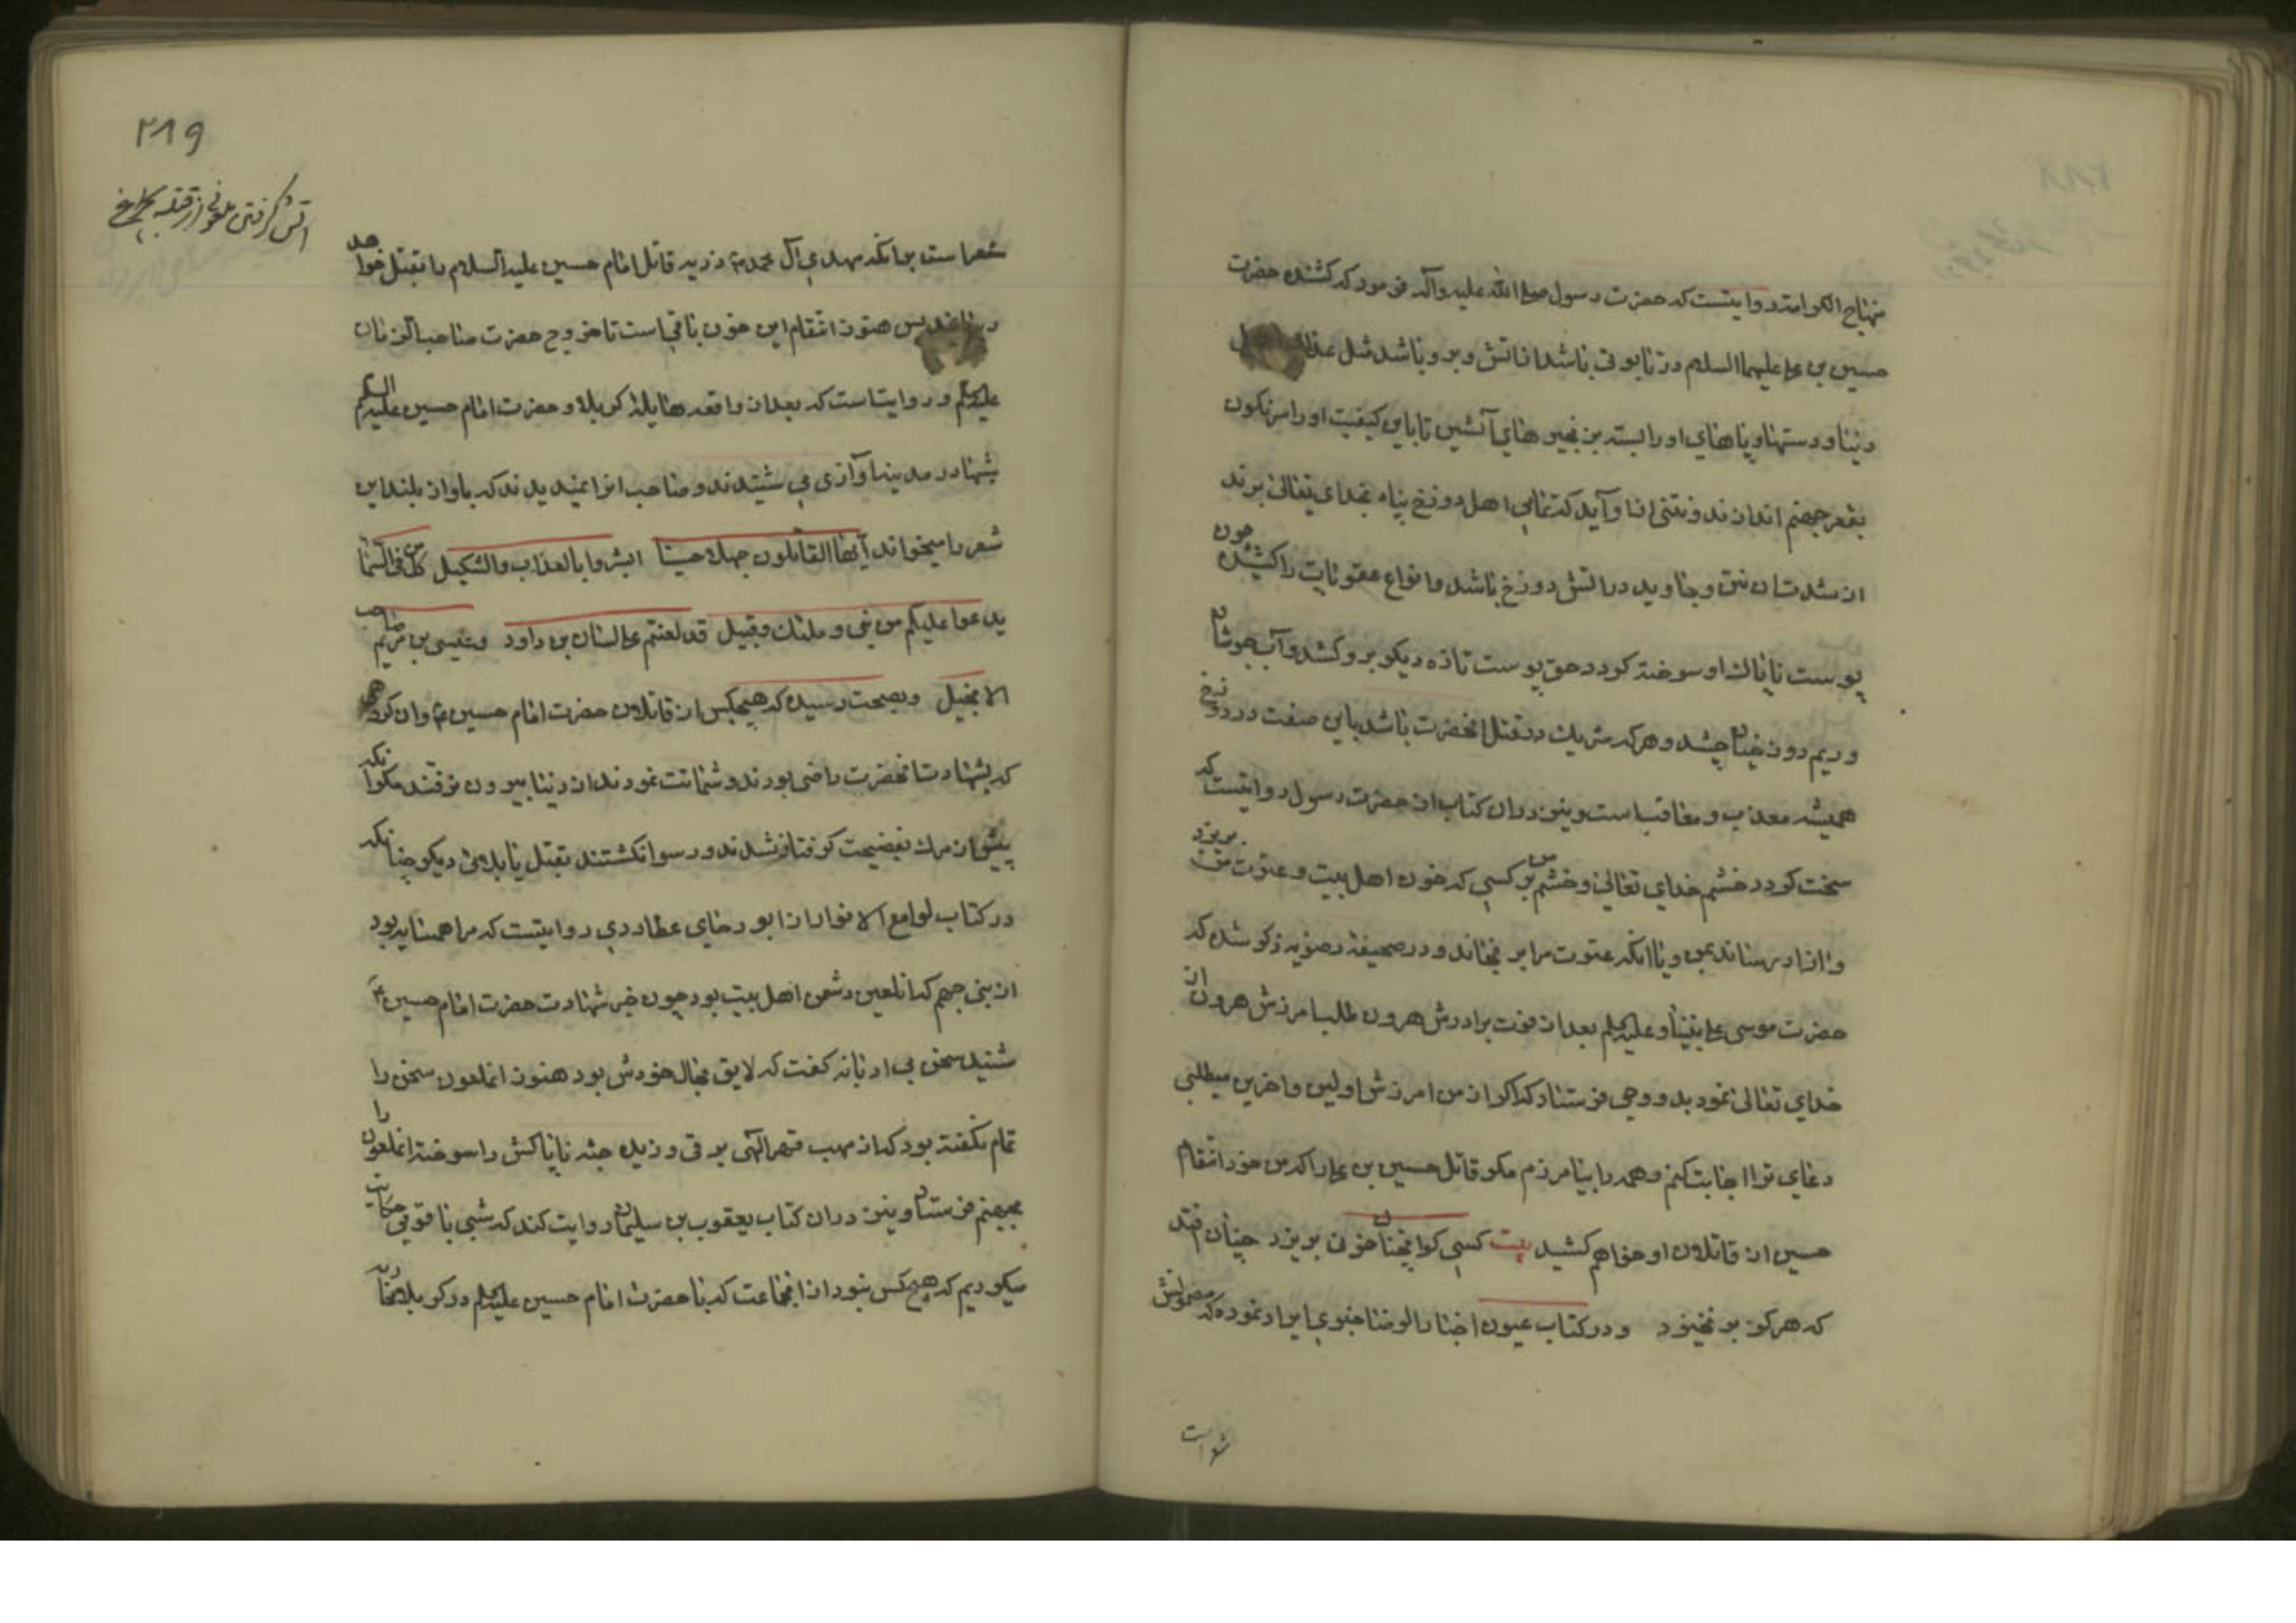 منهاج الکرامة روایتست که حضرت رسول صلی الله علیه وآله فرمود که کشنده حضرت
حسین بن علی علیهما السلام در تابوتی باشد از آتش و بر و باشد مثل عذاب اهل
دنیا و دستها و پاهای او را بسته بزنجیرهای آتشین تا باین کیفیت او را سرنگون
بقعر جهنم اندازند و نتنی از او آید که تمامی اهل دوزخ پناه بخدای تعالی برند
از شدت آن نتن و جاوید در آتش دوزخ باشد و انواع عقوبات را کشیده چون
پوست ناپاک او سوخته گردد حق پوست تازه دیگر بر و کشد و آب جوشان
و ریم دوزخیان چشد و هر که شریک در قتل آنحضرت باشد باین صفت در دوزخ
همیشه معذب و معاقب است و نیز در آن کتاب از حضرت رسول روایتست که
سخت گردد خشم خدای تعالی و خشم من بر کسی که خون اهل بیت و عترت من بریزد
و آزار رساند بمن و یا آنکه عترت مرا برنجاند و در صحیفه رضویه ذکر شده که
حضرت موسی علی نبینا و علیه السلم بعد از فوت برادرش هرون طلب آمرزش هرون از
خدای تعالی نمود بدو وحی فرستاد که اگر از من آمرزش اولین و آخرین میطلبی
دعای ترا اجابت کنم و همه را بیامرزم مگر قاتل حسین بن علی را که من خود انتقام
حسین از قاتلان او خواهم کشید بیت کسی کو اینچنان خونی بریزد چنان افتد
که هرگز بر نخیزد و در کتاب عیون اخبار الرضا خبری ایراد نموده که مضمونش
شعر است
۲۸۹
آتش گرفتن ملعونی از فتیله چراغ
شعر است بر آنکه مهدی آل محمد ع ذریه قاتل امام حسین علیه السلام را بقتل خواهد
رسانید پس هنوز انتقام این خون باقی است تا خروج حضرت صاحب الزمان
علیه السلم و روایت است که بعد از واقعه هایله کربلا و حضرت امام حسین علیه السلم
شبها در مدینه آوازی می شنیدند و صاحب آنرا نمیدیدند که باواز بلند این
شعر را میخواند ایها القاتلون جهلا حسینا ابشروا بالعذاب والتنکیل کل من فی السما
یدعوا علیکم من نبی و ملئک و قبیل قد لعنتم علی لسان بن داود و عیسی بن مریم صاحب
الانجیل و بصحت رسیده که هیچکس از قاتلان حضرت امام حسین ع و از گروهی
که بشهادت آنحضرت راضی بودند و شماتت نمودند از دنیا بیرون نرفتند مگر آنکه
پیش از مرگ بفضیحت گرفتار شدند و رسوا گشتند بقتل یا بلائی دیگر چنانکه
در کتاب لوامع الانوار از ابو رجای عطاردی روایتست که مرا همسایه بود
از بنی جهم که آن لعین دشمن اهل بیت بود چون خبر شهادت حضرت امام حسین ع
شنید سخن بی ادبانه گفت که لایق بحال خودش بود هنوز آن ملعون سخن را
تمام نگفته بود که از مهب قهر الهی برقی وزیده جثه ناپاکش را سوخته آن ملعون را
بجهنم فرستاد و نیز در آن کتاب یعقوب بن سلیمان روایت کند که شبی با قومی حکایت
میکردیم که هیچ کس نبود از آن جماعت که با حضرت امام حسین علیه السلم در کربلا